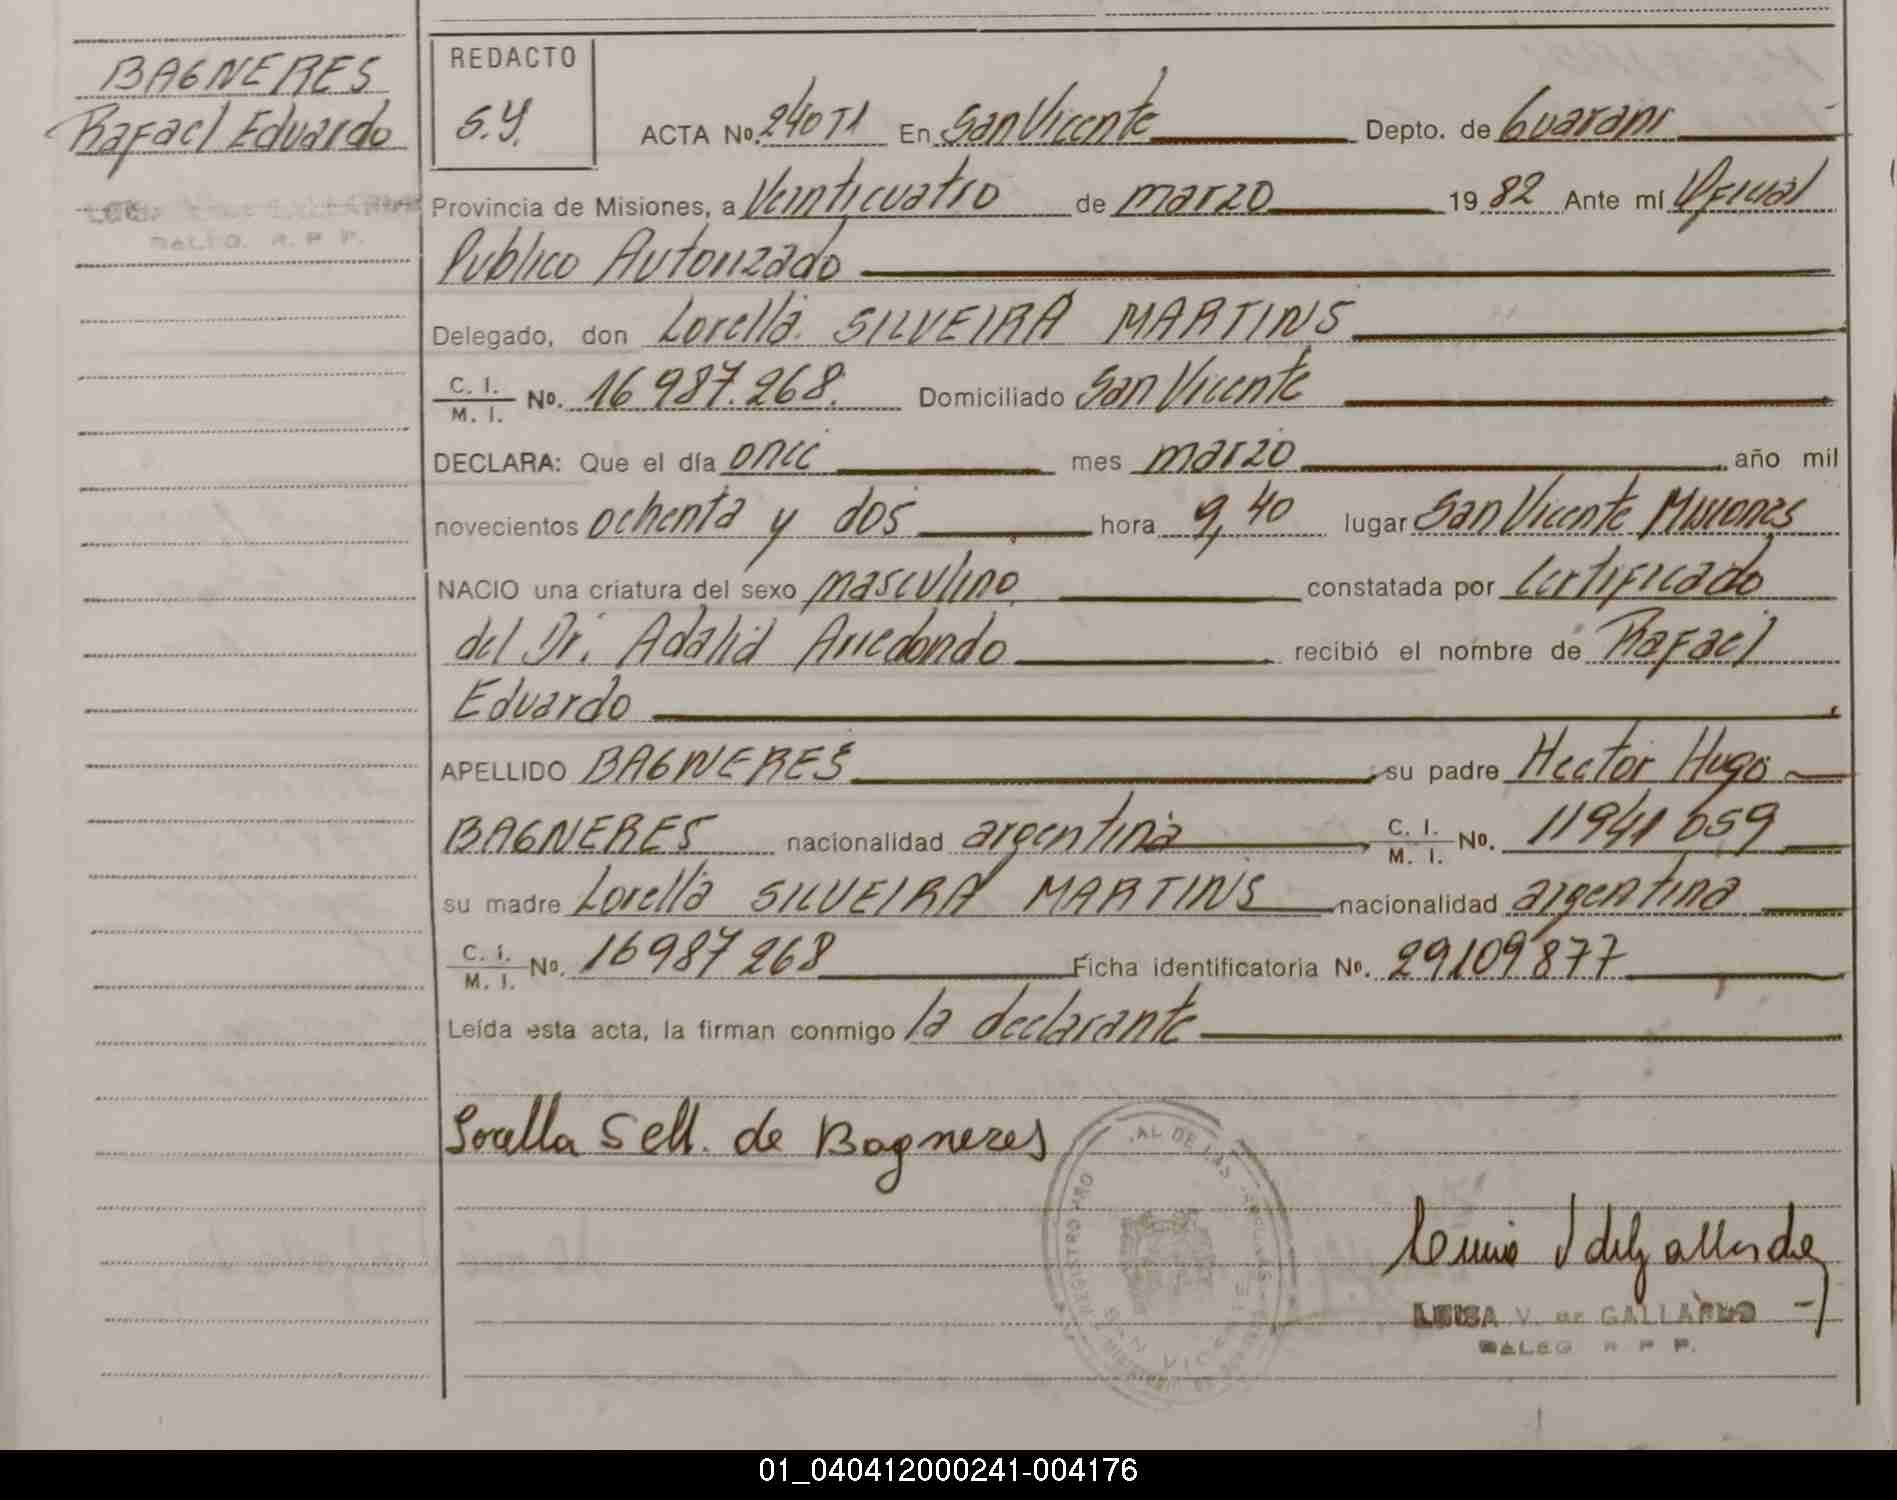 BAGNERES
Rafael Eduardo
REDACTO
S.Y.
ACTA No. 240 T1 En San Vicente Depto. de Guarani
Provincia de Misiones, a Veinticuatro de marzo 19 82 Ante mí Oficial
Publico Autorizado
Delegado, don Lorella SILVEIRA MARTINS
C. I. / M. I. No. 16 987.268. Domiciliado San Vicente
DECLARA: Que el día once mes marzo año mil
novecientos ochenta y dos hora 9,40 lugar San Vicente Misiones
NACIO una criatura del sexo masculino constatada por Certificado
del Dr. Adalid Arredondo recibió el nombre de Rafael
Eduardo
APELLIDO BAGNERES su padre Hector Hugo
BAGNERES nacionalidad argentina C. I. / M. I. No. 11941 659
su madre Lorella SILVEIRA MARTINS nacionalidad argentina
C. I. / M. I. No. 16987 268 Ficha identificatoria No. 29109877
Leída esta acta, la firman conmigo la declarante
Lorella de Bagneres
AL DE LAS
REGISTRO PRO
LUISA V. de GALLARDO
R P P.
01_040412000241-004176